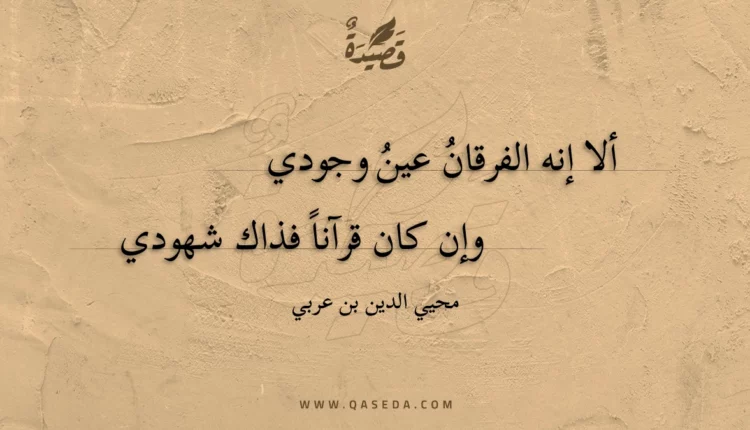 قَصِيْدَةٌ
ألا إنه الفرقانُ عينُ وجودي
وإن كان قرآناً فذاك شهودي
محيي الدين بن عربي
WWW.QASEDA.COM